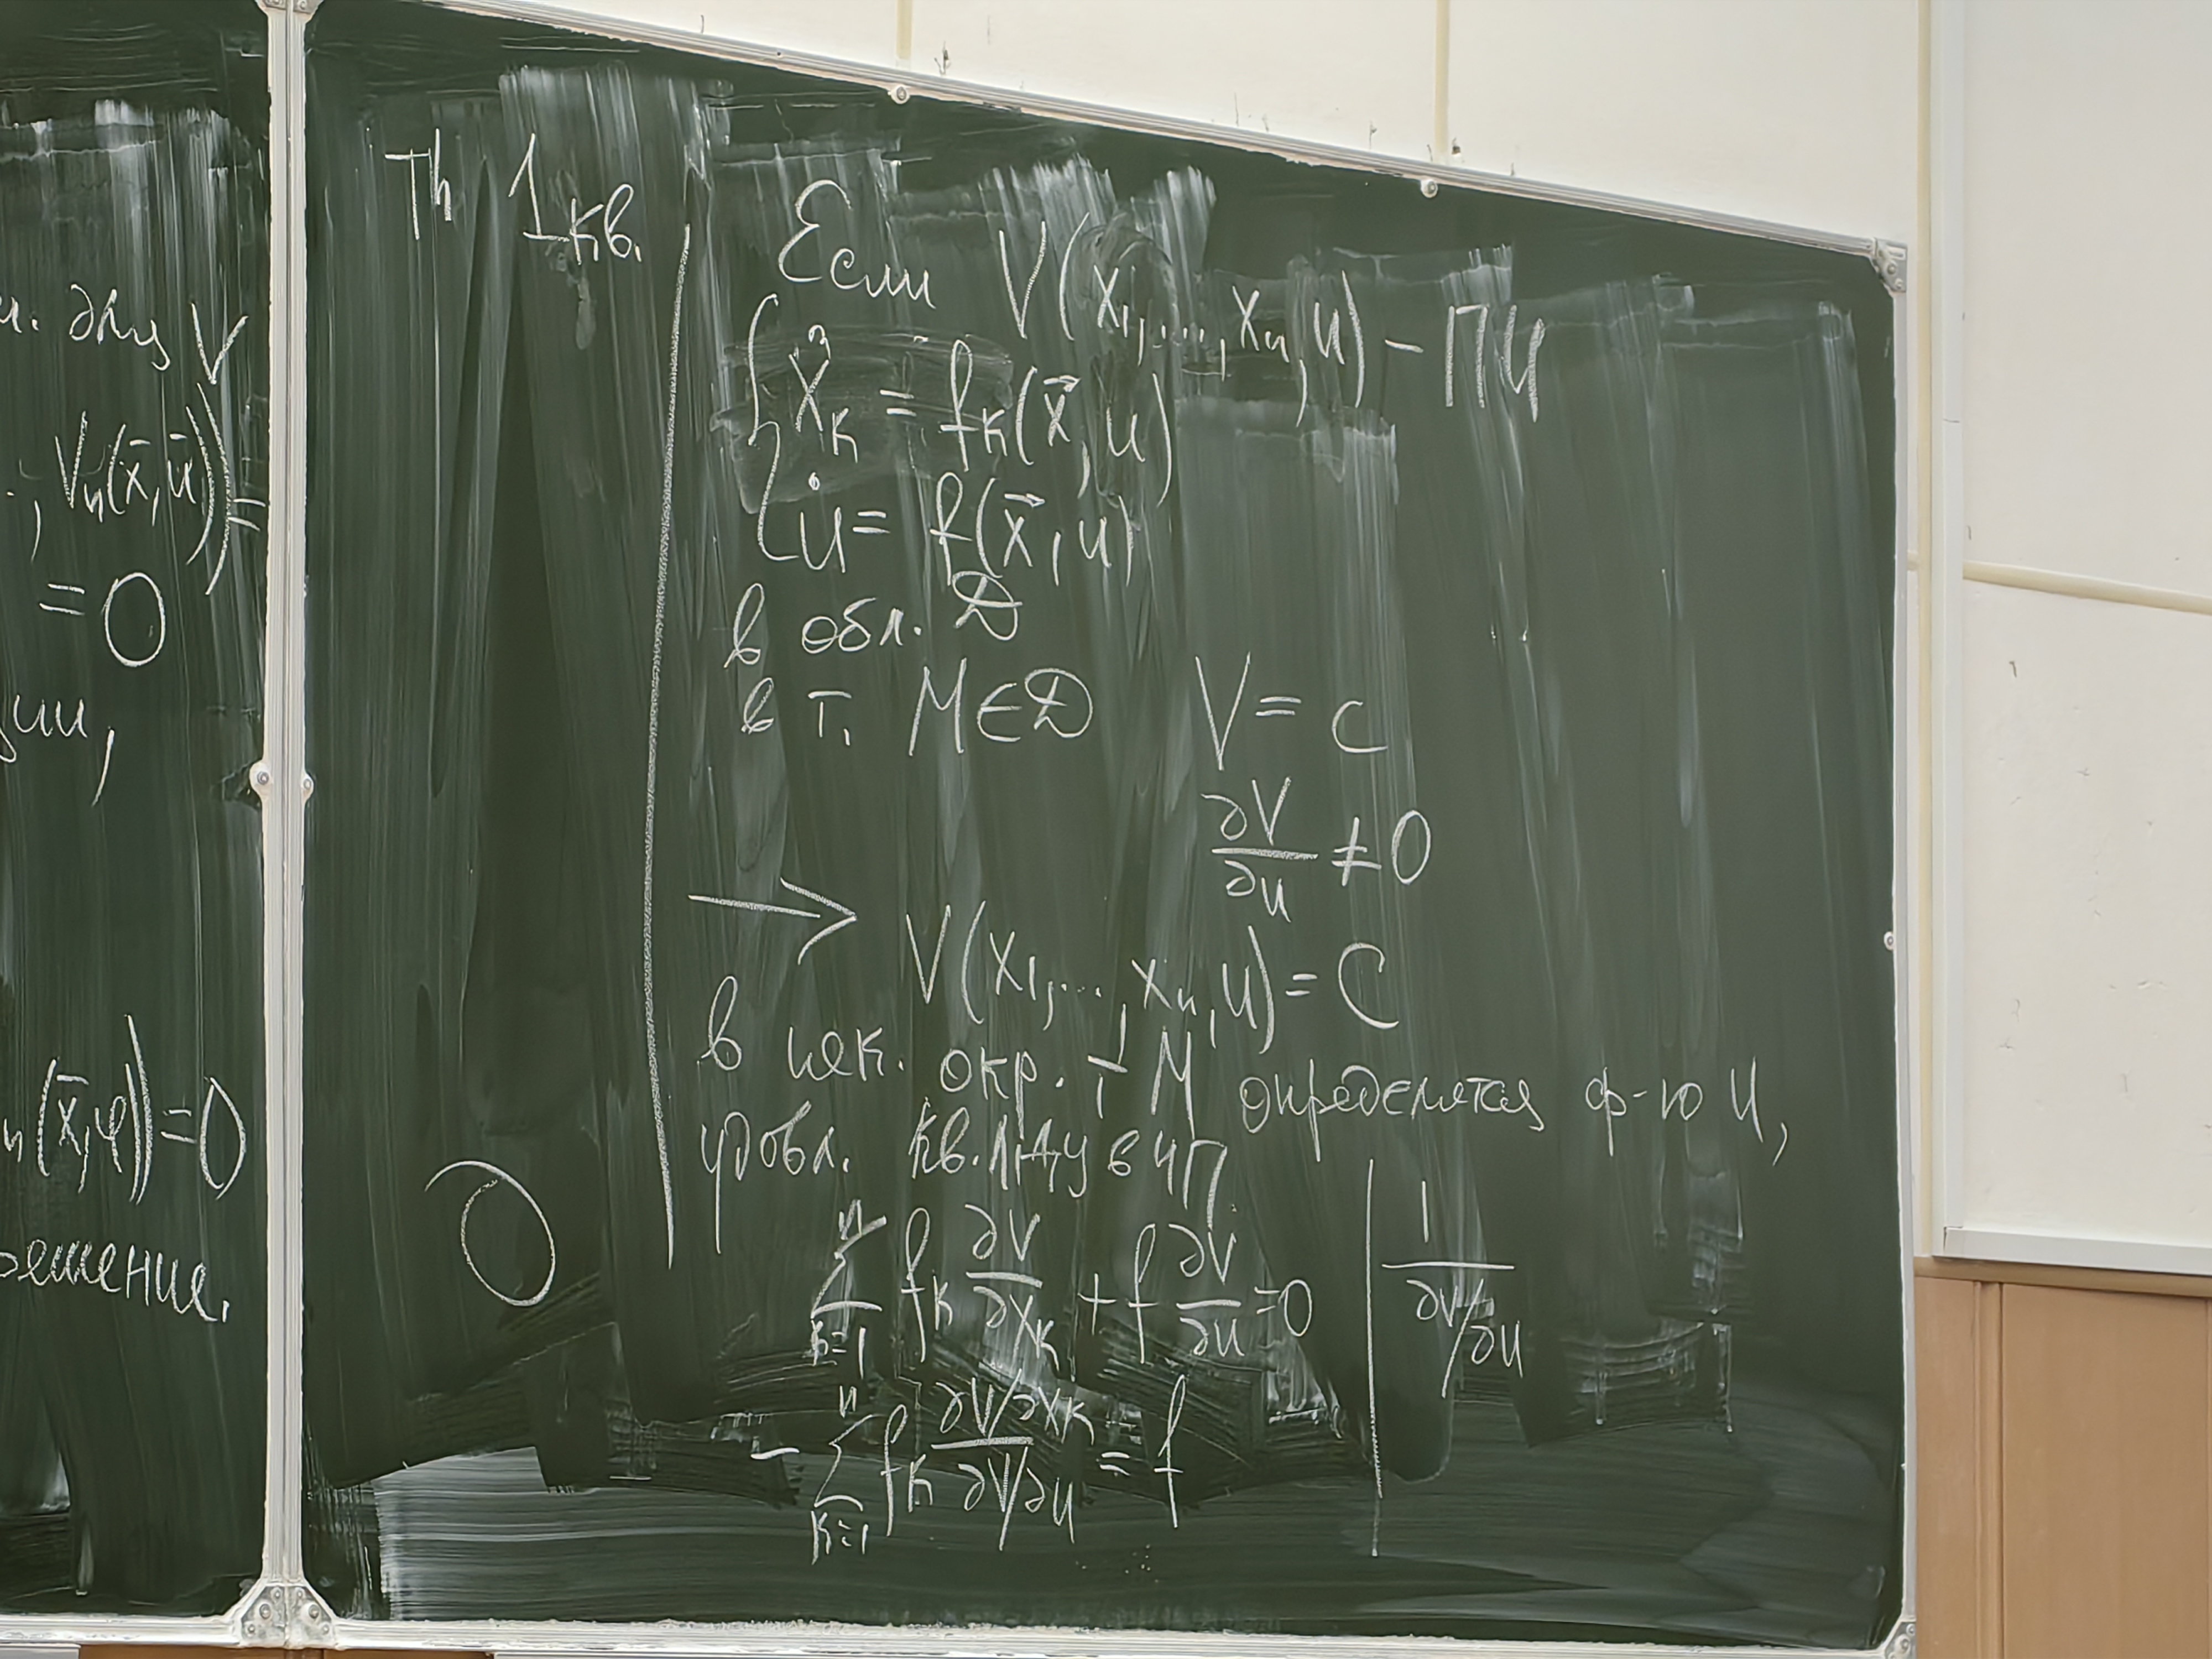 и. для V
., Vₙ(x̄, ū)) =
= 0
ции,
ₙ(x̄, φ)) = 0
решение.
Th 1кв.
Если V(x₁, ..., xₙ, u) – ПИ
{ ẋₖ = fₖ(x⃗, u)
u̇ = f(x⃗, u)
в обл. D
в т. M ∈ D V = c
∂V/∂u ≠ 0
→ V(x₁, ..., xₙ, u) = C
в нек. окр. т M определяется ф-ю u,
удовл. кв. ЛДУ в ЧП
∑ₖ₌₁ⁿ fₖ ∂V/∂xₖ + f ∂V/∂u = 0 | 1/(∂V/∂u)
– ∑ₖ₌₁ⁿ fₖ (∂V/∂xₖ)/(∂V/∂u) = f